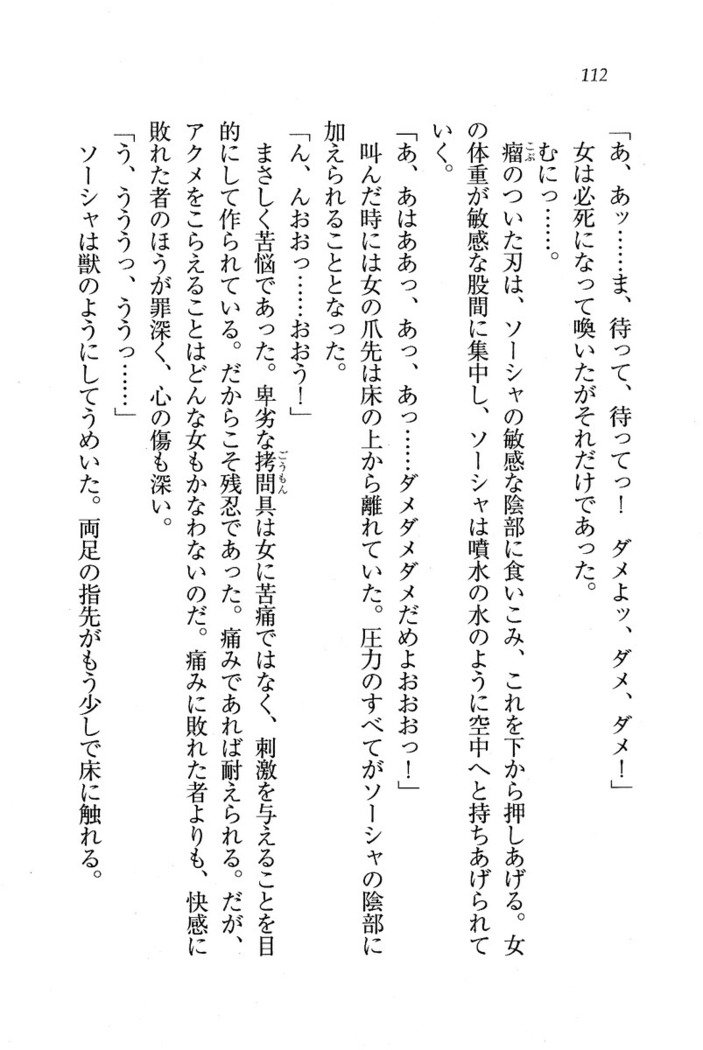 112
「あ、あッ……ま、待って、待ってっ！　ダメよッ、ダメ、ダメ！」
女は必死になって喚いたがそれだけであった。
むにっ……。
瘤のついた刃は、ソーシャの敏感な陰部に食いこみ、これを下から押しあげる。女
の体重が敏感な股間に集中し、ソーシャは噴水の水のように空中へと持ちあげられて
いく。
「あ、あはああっ、あっ、あっ……ダメダメダメだめよおおおっ！」
叫んだ時には女の爪先は床の上から離れていた。圧力のすべてがソーシャの陰部に
加えられることとなった。
「ん、んおおっ……おおう！」
まさしく苦悩であった。卑劣な拷問具は女に苦痛ではなく、刺激を与えることを目
的にして作られている。だからこそ残忍であった。痛みであれば耐えられる。だが、
アクメをこらえることはどんな女もかなわないのだ。痛みに敗れた者よりも、快感に
敗れた者のほうが罪深く、心の傷も深い。
「う、うううっ、ううっ……」
ソーシャは獣のようにしてうめいた。両足の指先がもう少しで床に触れる。